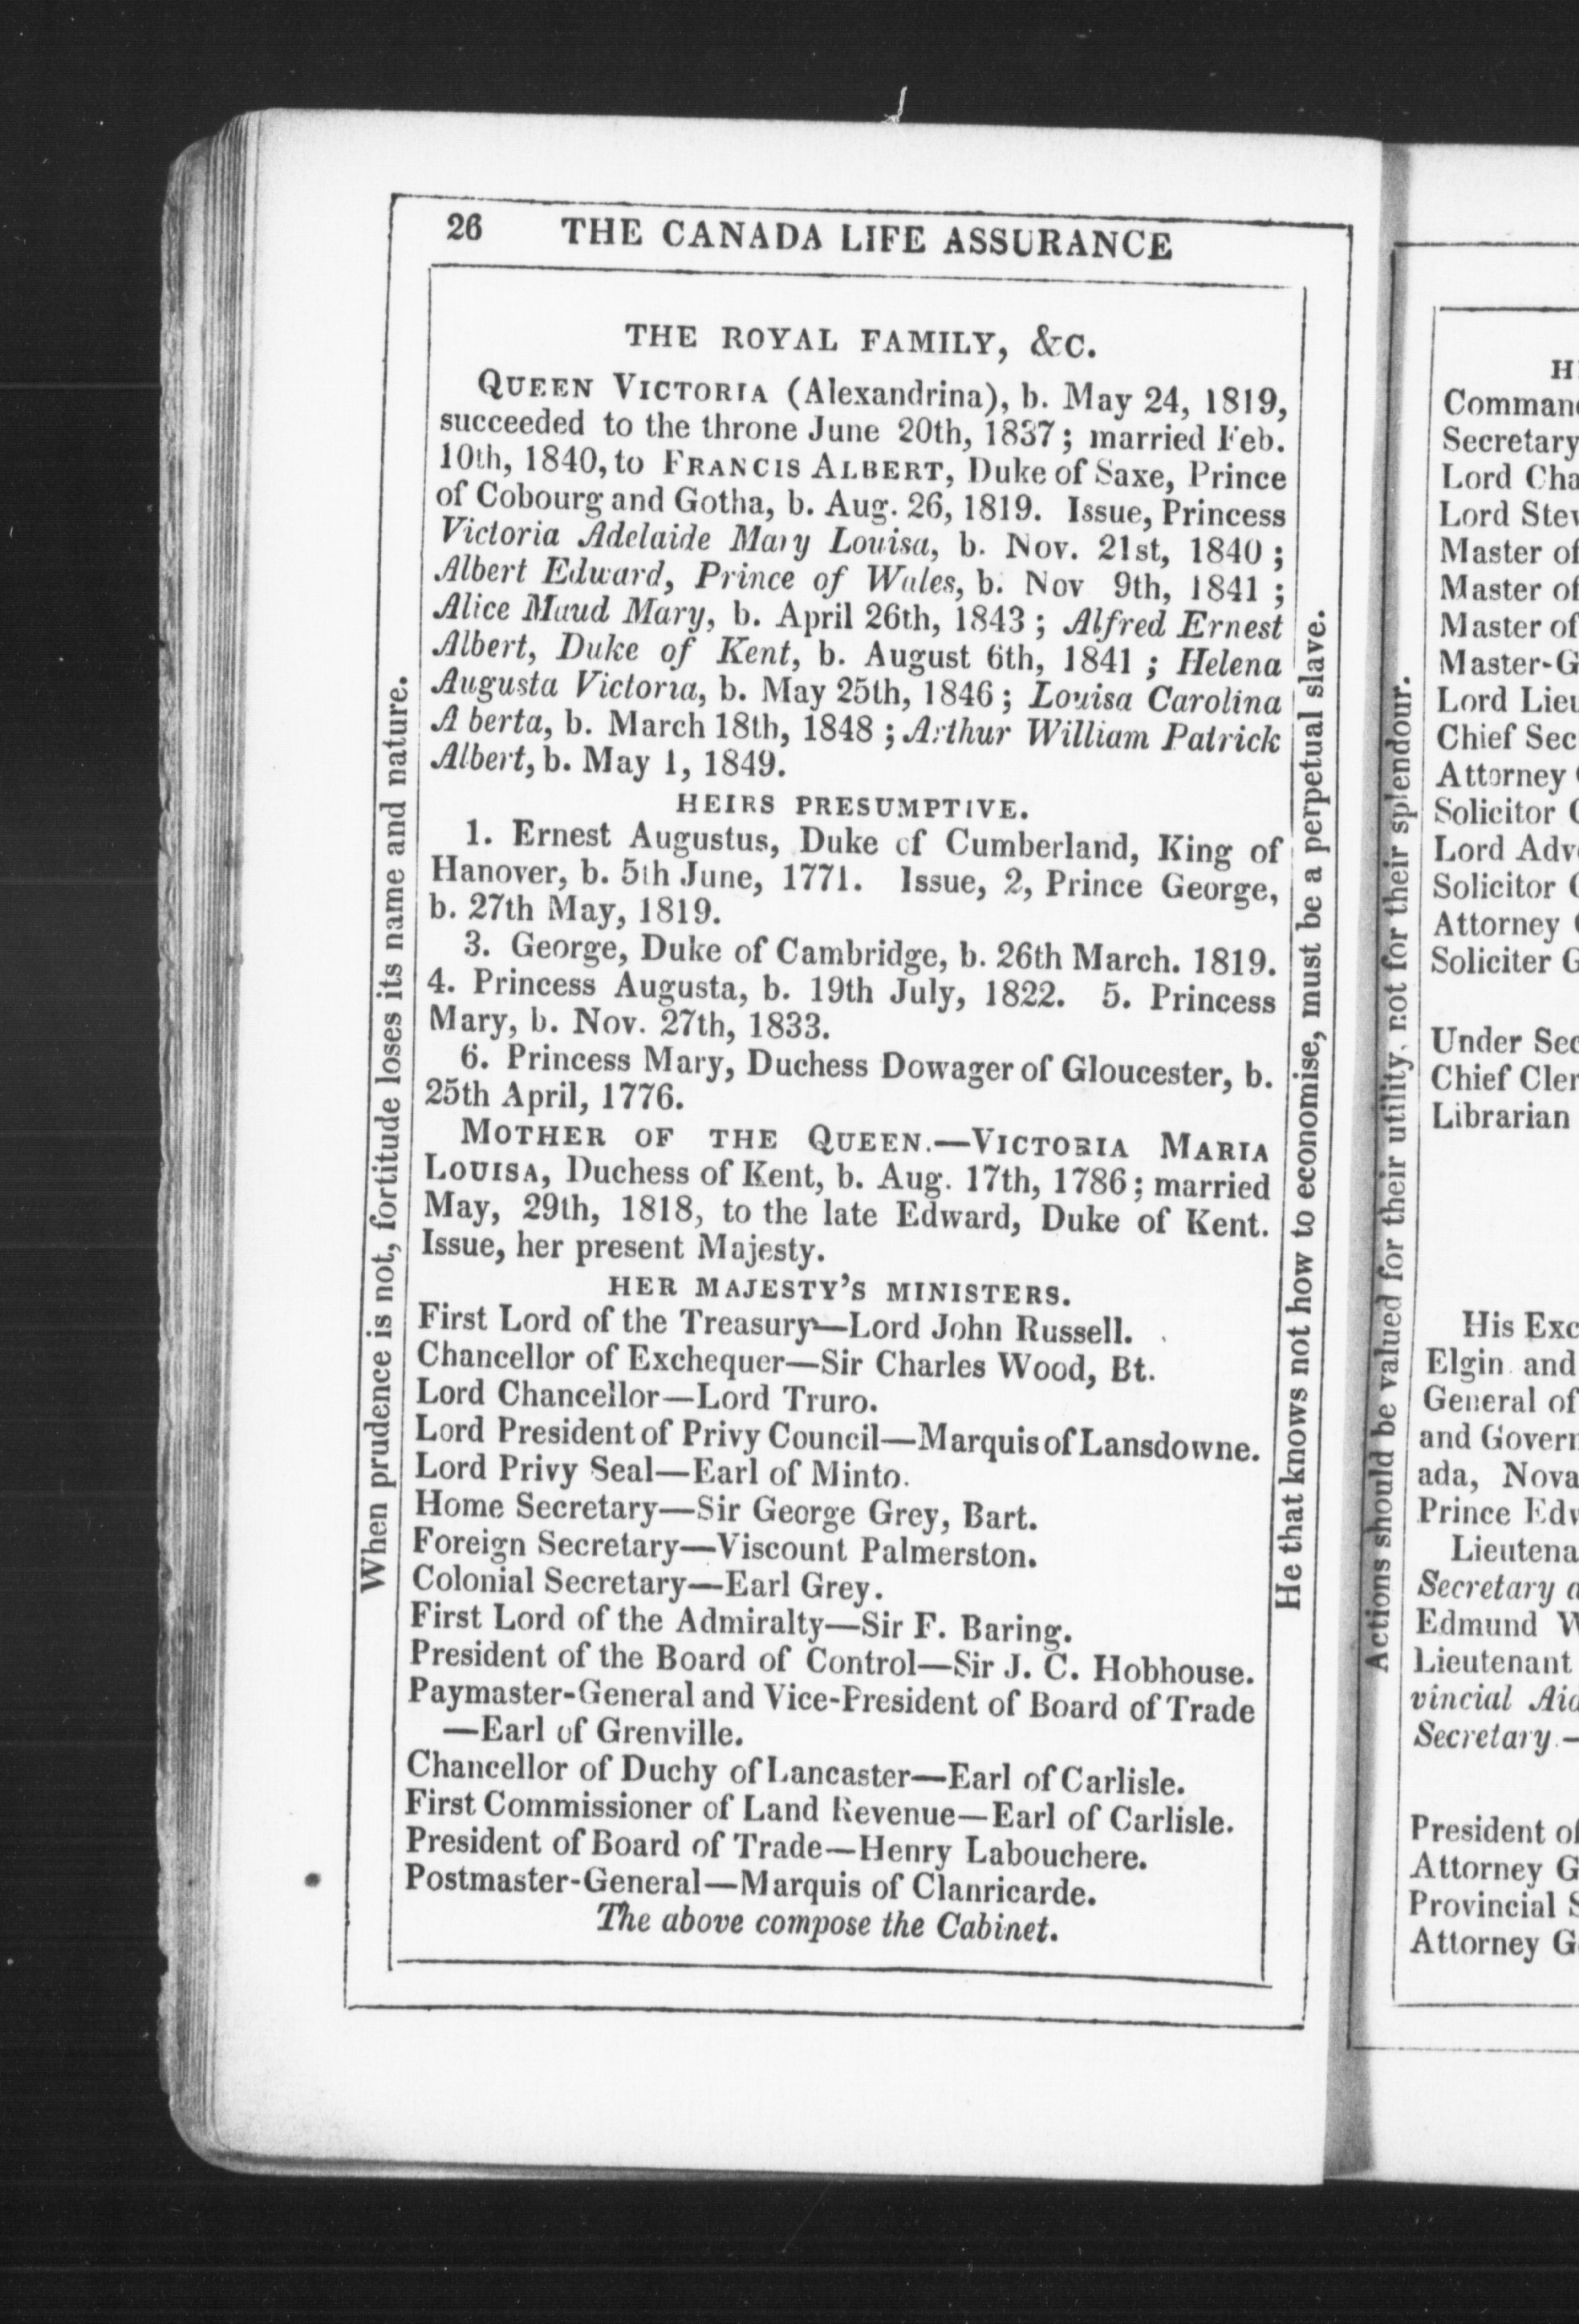 26 THE CANADA LIFE ASSURANCE
THE ROYAL FAMILY, &C.
QUEEN VICTORIA (Alexandrina), b. May 24, 1819,
succeeded to the throne June 20th, 1837; married Feb.
10th, 1840, to FRANCIS ALBERT, Duke of Saxe, Prince
of Cobourg and Gotha, b. Aug. 26, 1819. Issue, Princess
Victoria Adelaide Mary Louisa, b. Nov. 21st, 1840;
Albert Edward, Prince of Wales, b. Nov 9th, 1841;
Alice Maud Mary, b. April 26th, 1843; Alfred Ernest
Albert, Duke of Kent, b. August 6th, 1841; Helena
Augusta Victoria, b. May 25th, 1846; Louisa Carolina
A berta, b. March 18th, 1848; Arthur William Patrick
Albert, b. May 1, 1849.
HEIRS PRESUMPTIVE.
1. Ernest Augustus, Duke of Cumberland, King of
Hanover, b. 5th June, 1771. Issue, 2, Prince George,
b. 27th May, 1819.
3. George, Duke of Cambridge, b. 26th March. 1819.
4. Princess Augusta, b. 19th July, 1822. 5. Princess
Mary, b. Nov. 27th, 1833.
6. Princess Mary, Duchess Dowager of Gloucester, b.
25th April, 1776.
MOTHER OF THE QUEEN.—VICTORIA MARIA
LOUISA, Duchess of Kent, b. Aug. 17th, 1786; married
May, 29th, 1818, to the late Edward, Duke of Kent.
Issue, her present Majesty.
HER MAJESTY'S MINISTERS.
First Lord of the Treasury—Lord John Russell.
Chancellor of Exchequer—Sir Charles Wood, Bt.
Lord Chancellor—Lord Truro.
Lord President of Privy Council—Marquis of Lansdowne.
Lord Privy Seal—Earl of Minto.
Home Secretary—Sir George Grey, Bart.
Foreign Secretary—Viscount Palmerston.
Colonial Secretary—Earl Grey.
First Lord of the Admiralty—Sir F. Baring.
President of the Board of Control—Sir J. C. Hobhouse.
Paymaster-General and Vice-President of Board of Trade
—Earl of Grenville.
Chancellor of Duchy of Lancaster—Earl of Carlisle.
First Commissioner of Land Revenue—Earl of Carlisle.
President of Board of Trade—Henry Labouchere.
Postmaster-General—Marquis of Clanricarde.
The above compose the Cabinet.
When prudence is not, fortitude loses its name and nature.
He that knows not how to economise, must be a perpetual slave.
Actions should be valued for their utility, not for their splendour.
Secretary
Lord
Lord
Master of
Master of
Master of
Lord
Chief
Attorney
Solicitor
Lord
Solicitor
Attorney
Soliciter
Under
Chief
Librarian
His
Elgin and
General of
and
ada, Nova
Prince
Secretary
Edmund
Lieutenant
vincial
Secretary.—
President of
Attorney
Provincial
Attorney